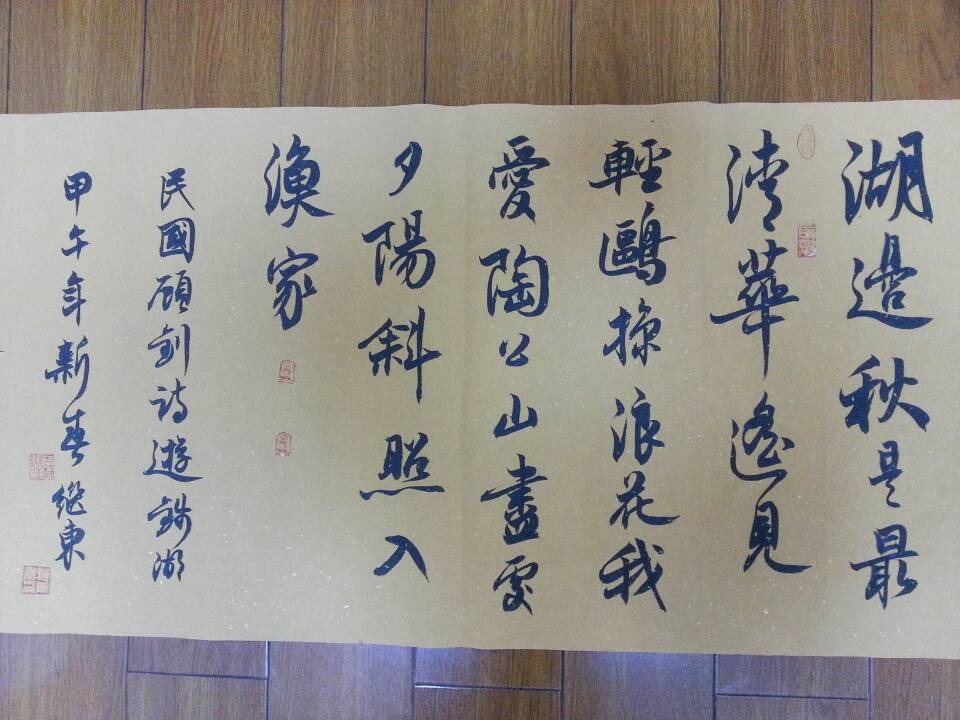 湖邊秋是最
清華遙見
輕鷗掠浪花我
愛陶公山盡處
夕陽斜照入
漁家
民國顧釗詩遊錢湖
甲午年新春繼東